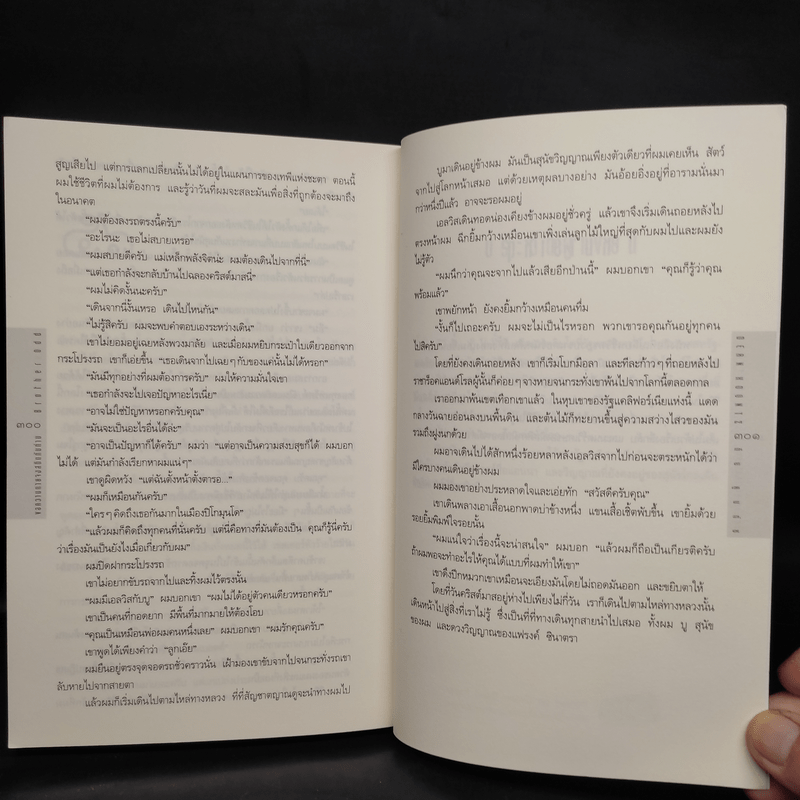 สูญเสียไป แต่การแลกเปลี่ยนนั้นไม่ได้อยู่ในแผนการของเทพีแห่งชะตา ตอนนี้
ผมใช้ชีวิตที่ผมไม่ต้องการ และรู้ว่าวันที่ผมจะสละมันเพื่อสิ่งที่ถูกต้องจะมาถึง
ในอนาคต
“ผมต้องลงรถตรงนี้ครับ”
“อะไรนะ เธอไม่สบายเหรอ”
“ผมสบายดีครับ แม่เหล็กพลังจิตน่ะ ผมต้องเดินไปจากที่นี่”
“แต่เธอกำลังจะกลับบ้านไปฉลองคริสต์มาสนี่”
“ผมไม่คิดงั้นนะครับ”
“เดินจากนี่งั้นเหรอ เดินไปไหนกัน”
“ไม่รู้สิครับ ผมจะพบคำตอบเองระหว่างเดิน”
เขาไม่ยอมอยู่เฉยหลังพวงมาลัย และเมื่อผมหยิบกระเป๋าใบเดียวออกจาก
กระโปรงรถ เขาก็เอ่ยขึ้น “เธอเดินจากไปเฉยๆ กับของแค่นั้นไม่ได้หรอก”
“มันมีทุกอย่างที่ผมต้องการครับ” ผมให้ความมั่นใจเขา
“เธอกำลังจะไปเจอปัญหาอะไรเนี่ย”
“อาจไม่ใช่ปัญหาหรอกครับคุณ”
“มันจะเป็นอะไรอื่นได้ล่ะ”
“อาจเป็นปัญหาก็ได้ครับ” ผมว่า “แต่อาจเป็นความสงบสุขก็ได้ ผมบอก
ไม่ได้ แต่มันกำลังเรียกหาผมแน่ๆ”
เขาดูผิดหวัง “แต่ฉันตั้งหน้าตั้งตารอ...”
“ผมก็เหมือนกันครับ”
“ใครๆ คิดถึงเธอกันมากในเมืองปิโกมุนโด”
“แล้วผมก็คิดถึงทุกคนที่นั่นครับ แต่นี่คือทางที่มันต้องเป็น คุณก็รู้นี่ครับ
ว่าเรื่องมันเป็นยังไงเมื่อเกี่ยวกับผม”
ผมปิดฝากระโปรงรถ
เขาไม่อยากขับรถจากไปและทิ้งผมไว้ตรงนั้น
“ผมมีเอลวิสกับบู” ผมบอกเขา “ผมไม่ได้อยู่ตัวคนเดียวหรอกครับ”
เขาเป็นคนที่กอดยาก มีพื้นที่มากมายให้ต้องโอบ
“คุณเป็นเหมือนพ่อผมคนหนึ่งเลย” ผมบอกเขา “ผมรักคุณครับ”
เขาพูดได้เพียงคำว่า “ลูกเอ๊ย”
ผมยืนอยู่ตรงจุดจอดรถชั่วคราวนั่น เฝ้ามองเขาขับจากไปจนกระทั่งรถเขา
ลับหายไปจากสายตา
แล้วผมก็เริ่มเดินไปตามไหล่ทางหลวง ที่ที่สัญชาตญาณดูจะนำทางผมไป
บูมาเดินอยู่ข้างผม มันเป็นสุนัขวิญญาณเพียงตัวเดียวที่ผมเคยเห็น สัตว์
จากไปสู่โลกหน้าเสมอ แต่ด้วยเหตุผลบางอย่าง มันอ้อยอิ่งอยู่ที่อารามนั่นมา
กว่าหนึ่งปีแล้ว อาจจะรอผมอยู่
เอลวิสเดินทอดน่องเคียงข้างผมอยู่ชั่วครู่ แล้วเขาจึงเริ่มเดินถอยหลังไป
ตรงหน้าผม ฉีกยิ้มกว้างเหมือนเขาเพิ่งเล่นลูกไม้ใหญ่ที่สุดกับผมไปและผมยัง
ไม่รู้ตัว
“ผมนึกว่าคุณจะจากไปแล้วเสียอีกป่านนี้” ผมบอกเขา “คุณก็รู้ว่าคุณ
พร้อมแล้ว”
เขาพยักหน้า ยังคงยิ้มกว้างเหมือนคนทึ่ม
“งั้นก็ไปเถอะครับ ผมจะไม่เป็นไรหรอก พวกเขารอคุณกันอยู่ทุกคน
ไปสิครับ”
โดยที่ยังคงเดินถอยหลัง เขาก็เริ่มโบกมือลา และทีละก้าวๆ ที่ถอยหลังไป
ราชาร็อคแอนด์โรลผู้นั้นก็ค่อยๆ จางหายจนกระทั่งเขาพ้นไปจากโลกนี้ตลอดกาล
เราออกมาพ้นเขตเทือกเขาแล้ว ในหุบเขาของรัฐแคลิฟอร์เนียแห่งนี้ แดด
กลางวันฉายอ่อนลงบนพื้นดิน และต้นไม้ก็ทะยานขึ้นสู่ความสว่างไสวของมัน
รวมถึงฝูงนกด้วย
ผมอาจเดินไปได้สักหนึ่งร้อยหลาหลังเอลวิสจากไปก่อนจะตระหนักได้ว่า
มีใครบางคนเดินอยู่ข้างผม
ผมมองเขาอย่างประหลาดใจและเอ่ยทัก “สวัสดีครับคุณ”
เขาเดินพลางเอาเสื้อนอกพาดบ่าข้างหนึ่ง แขนเสื้อเชิ้ตพับขึ้น เขายิ้มด้วย
รอยยิ้มพิมพ์ใจรอยนั้น
“ผมแน่ใจว่าเรื่องนี้จะน่าสนใจ” ผมบอก “แล้วผมก็ถือเป็นเกียรติครับ
ถ้าผมพอจะทำอะไรให้คุณได้แบบที่ผมทำให้เขา”
เขาดึงปีกหมวกเขาเหมือนจะเอียงมันโดยไม่ถอดมันออก และขยิบตาให้
โดยที่วันคริสต์มาสอยู่ห่างไปเพียงไม่กี่วัน เราก็เดินไปตามไหล่ทางหลวงนั้น
เดินหน้าไปสู่สิ่งที่เราไม่รู้ ซึ่งเป็นที่ที่ทางเดินทุกสายนำไปเสมอ ทั้งผม บู สุนัข
ของผม และดวงวิญญาณของแฟรงค์ ซินาตรา